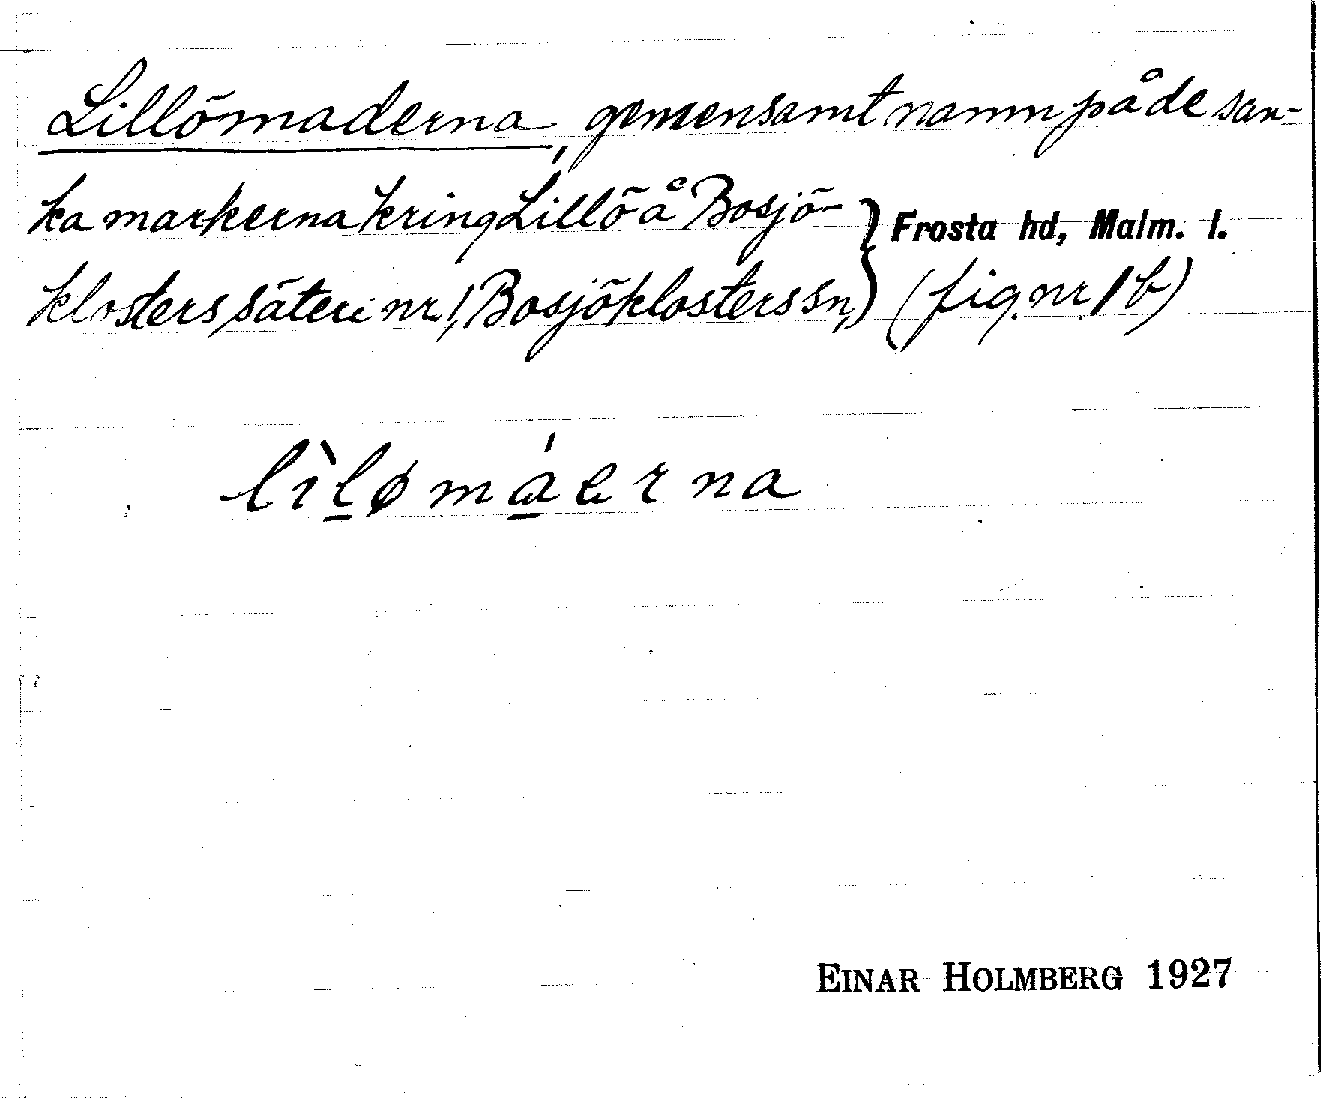 Lillömaderna, gemensamt namn på de san-
ka markerna kring Lillö å Bosjö-
klosters säteri nr 1, Bosjöklosters sn,
Frosta hd, Malm. l.
(fig. nr 1 b)
lìlømáerna
EINAR HOLMBERG 1927